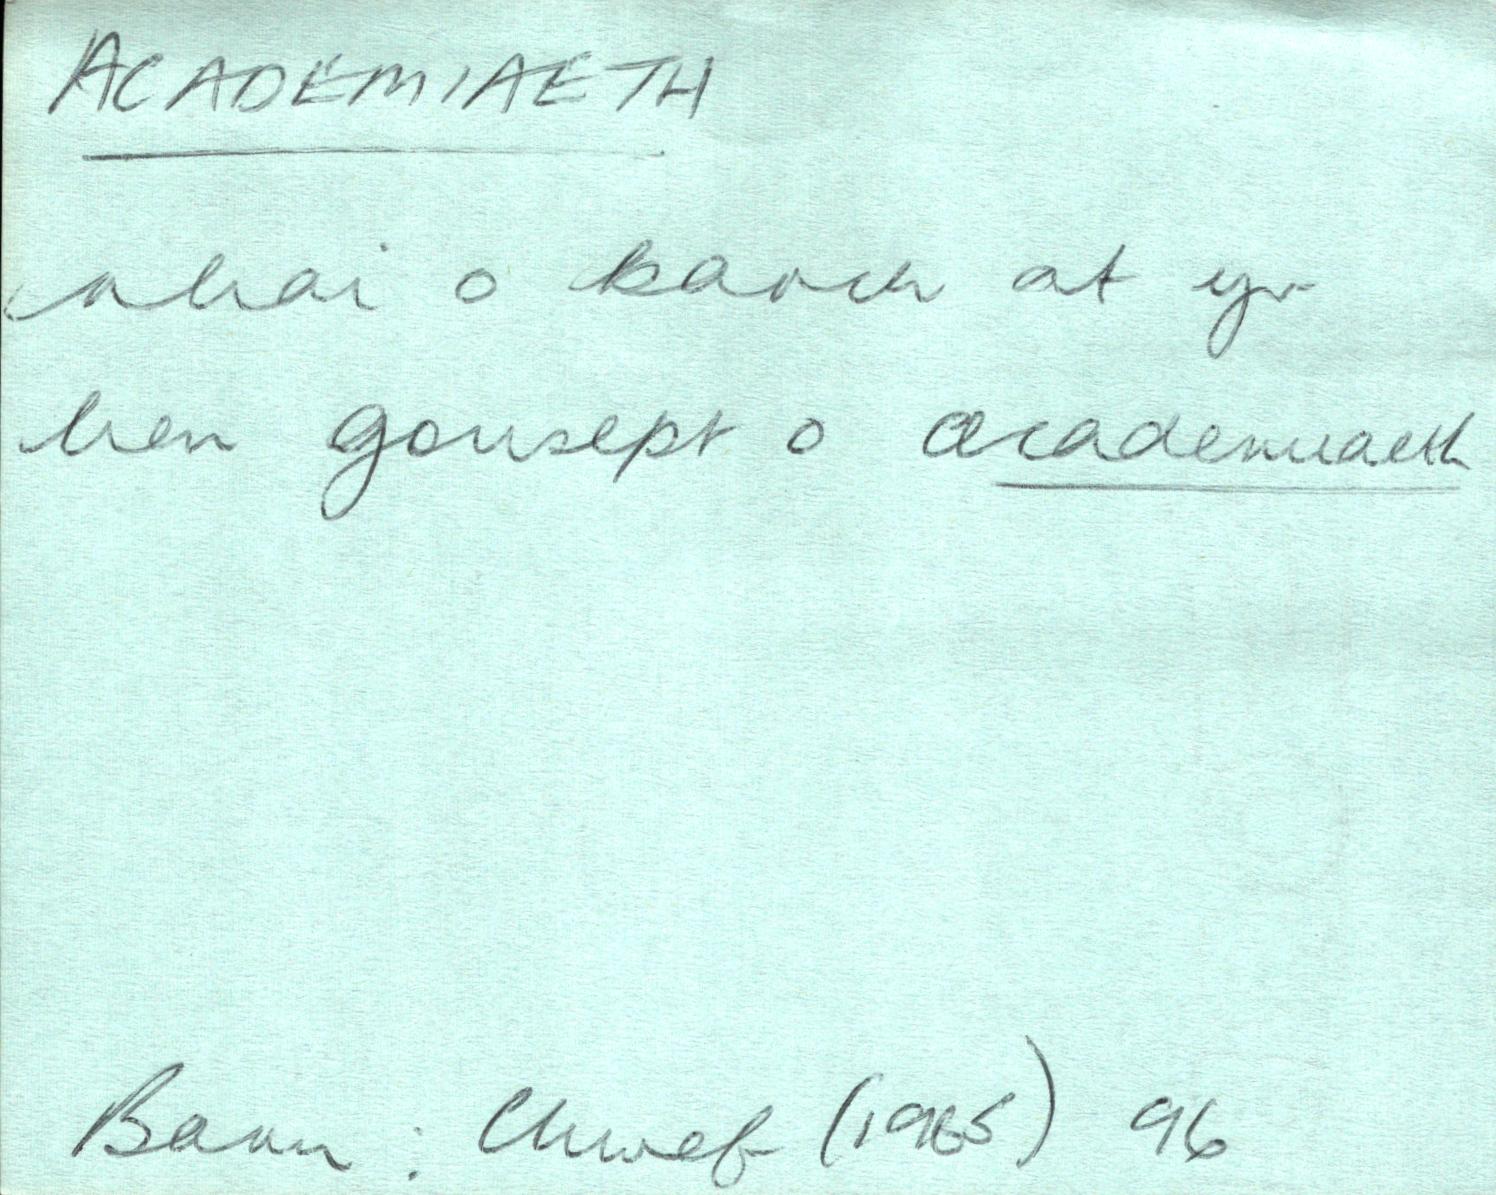 ACADEMIAETH
rhai o barch at yr
hen gonsept o academiaeth
Barn: Chwef (1965) 96